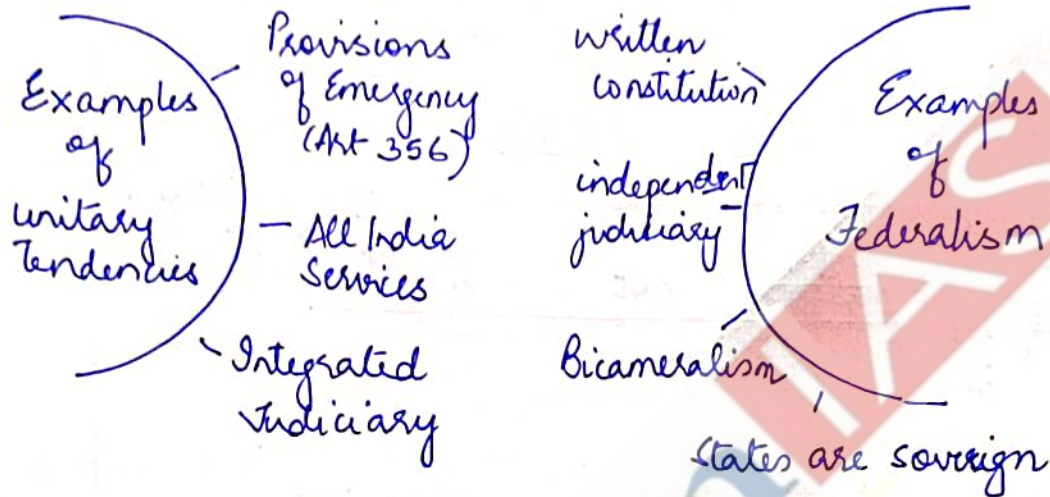 Examples
of
unitary
Tendencies
Provisions
of Emergency
(Art 356)
All India
Services
Integrated
Judiciary
written
constitution
independent
judiciary
Bicameralism
States are soverign
Examples
of
Federalism
IAS